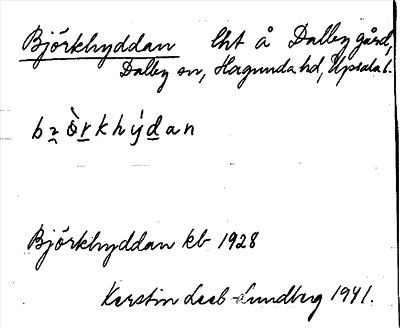 Björkhyddan lht å Dalby gård,
Dalby sn, Hagunda hd, Upsala l.
bɜ̯ö̀rkhýdan
Björkhyddan kb 1928
Kerstin Leeb-Lundberg 1941.